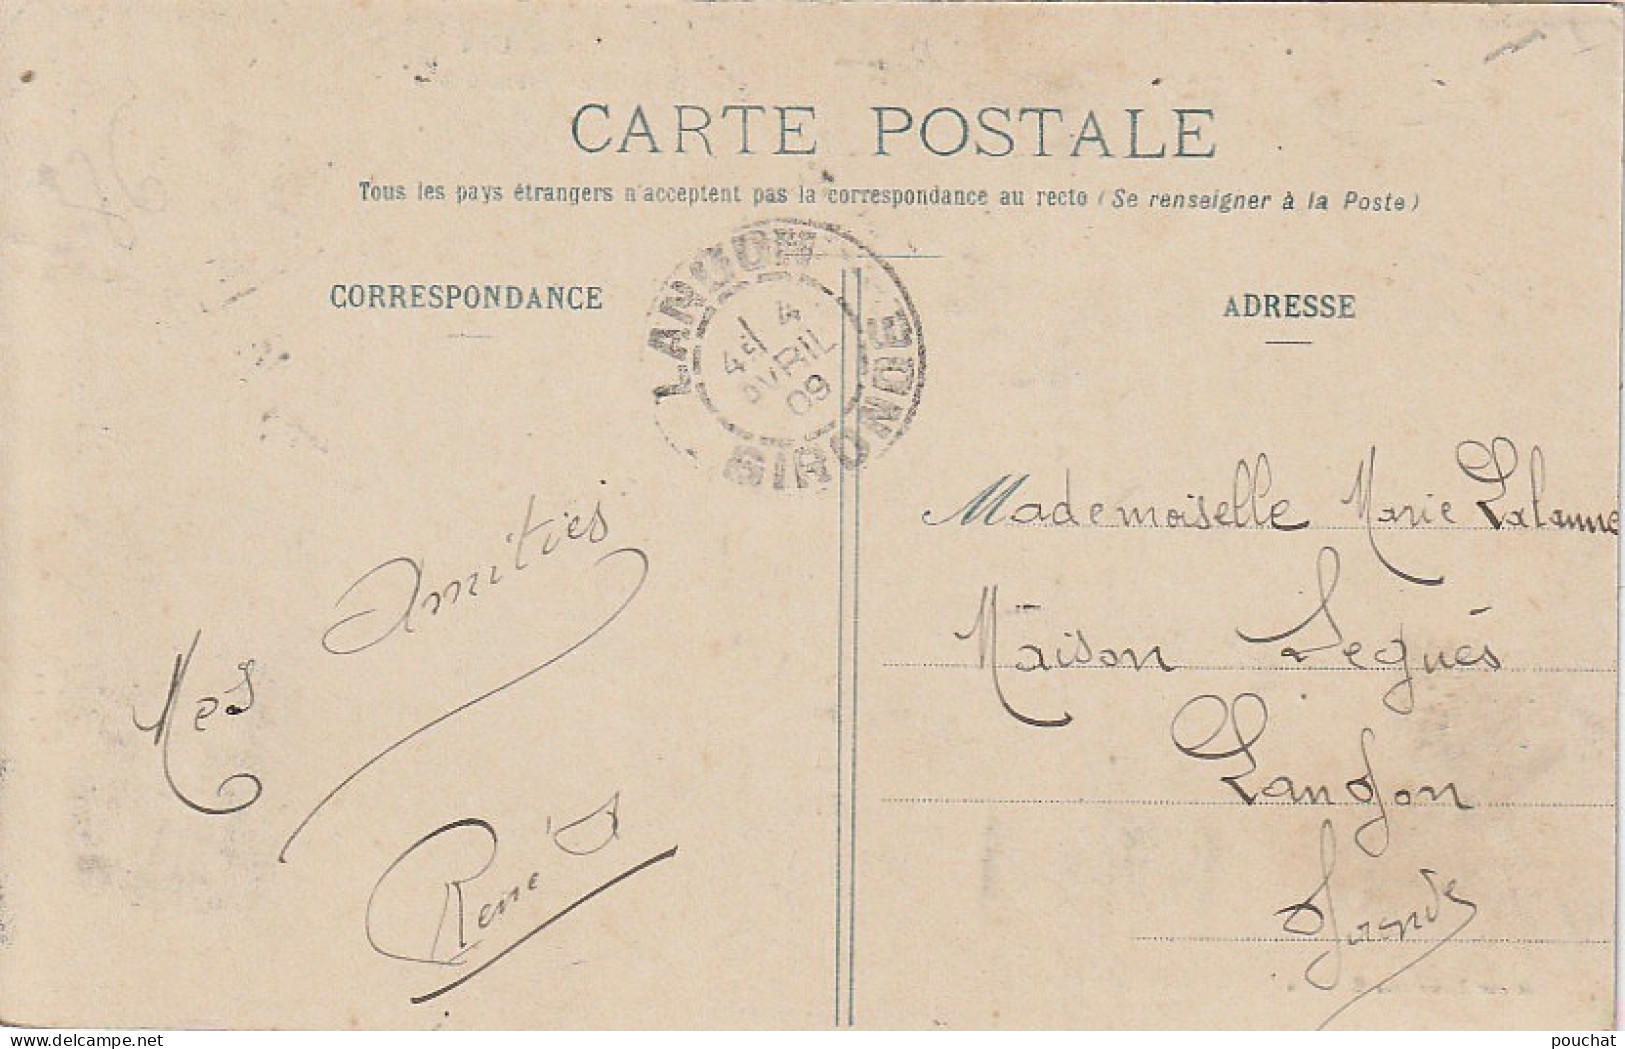 CARTE POSTALE
Tous les pays étrangers n'acceptent pas la correspondance au recto (Se renseigner à la Poste)
CORRESPONDANCE
ADRESSE
LANGON
4
AVRIL
09
GIRONDE
Mes Amitiés
René
Mademoiselle Marie Lalanne
Maison Legués
Langon
Gironde
delcampe.net
pouchat